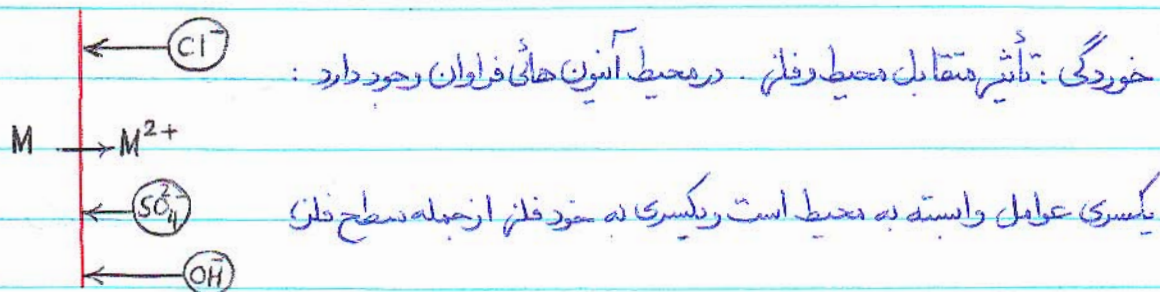 Cl⁻
خوردگی : تأثیر متقابل محیط و فلز . در محیط آنیون هائی فراوان وجود دارد :
M → M²⁺
SO₄²⁻
یکسری عوامل وابسته به محیط است و یکسری به خود فلز از جمله سطح فلز
OH⁻